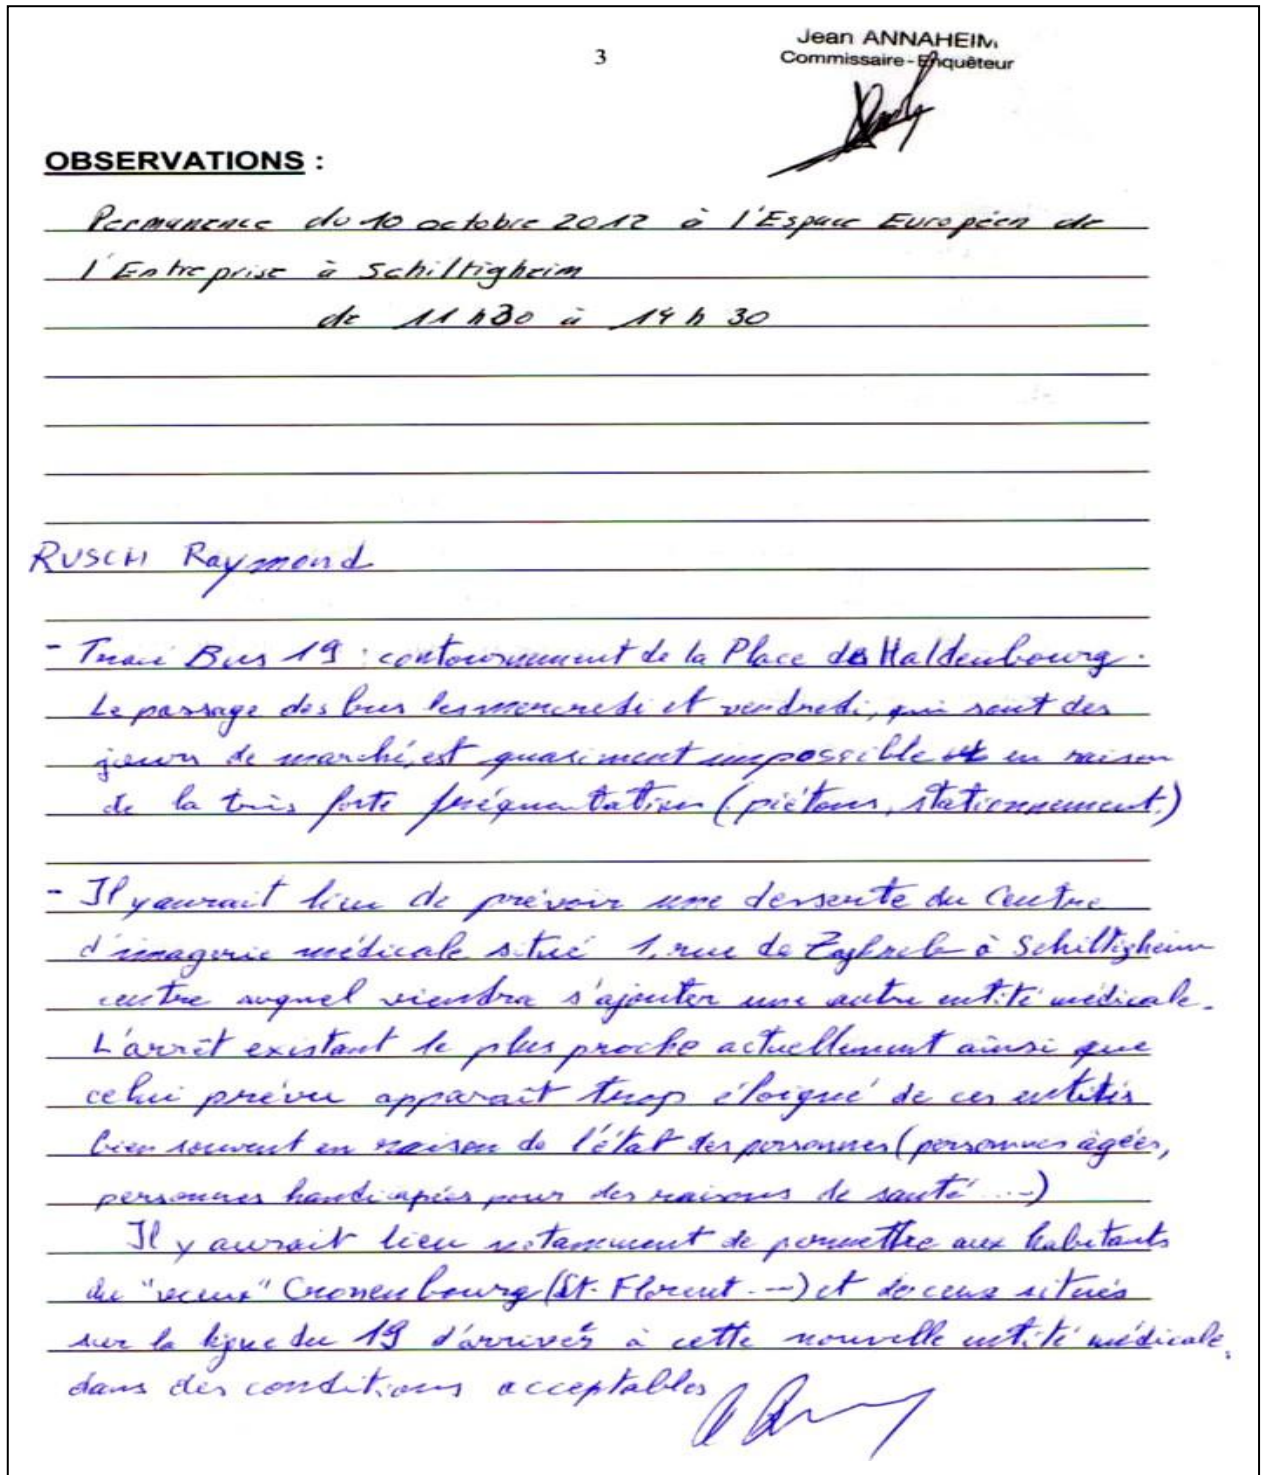 3
Jean ANNAHEIM
Commissaire-Enquêteur
OBSERVATIONS :
Permanence du 10 octobre 2012 à l'Espace Européen de
l'Entreprise à Schiltigheim
de 11 h30 à 14 h 30
RUSCH Raymond
- Tracé Bus 19 : contournement de la Place de Haldenbourg.
Le passage des bus les mercredi et vendredi, qui sont des
jours de marché, est quasiment impossible en raison
de la très forte fréquentation (piétons, stationnement.)
- Il y aurait lieu de prévoir une desserte du Centre
d'imagerie médicale situé 1, rue de Zagreb à Schiltigheim
centre auquel viendra s'ajouter une autre entité médicale.
L'arrêt existant le plus proche actuellement ainsi que
celui prévu apparaît trop éloigné de ces entités
bien souvent en raison de l'état des personnes (personnes âgées,
personnes handicapées pour des raisons de santé ...)
Il y aurait lieu notamment de permettre aux habitants
du "vieux" Cronenbourg (St. Florent ...) et de ceux situés
sur la ligne du 19 d'arriver à cette nouvelle entité médicale,
dans des conditions acceptables